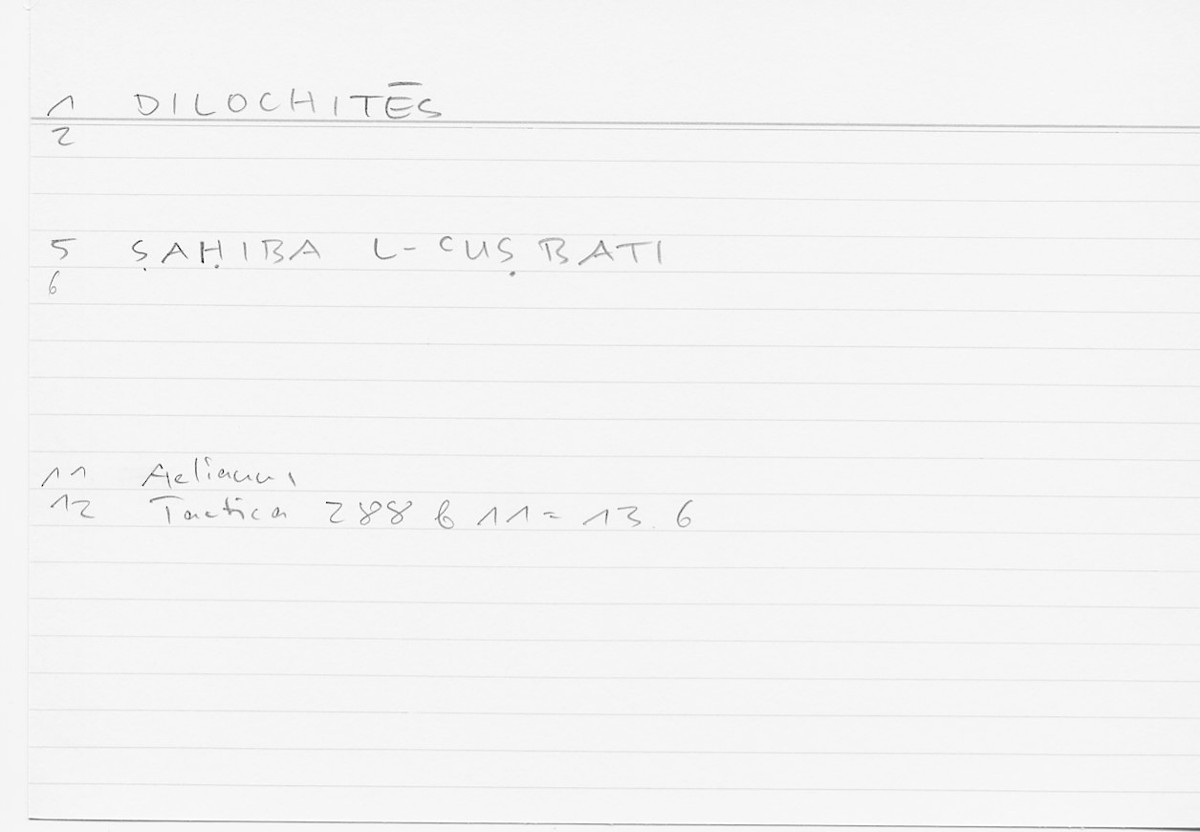 1 DILOCHITĒS
2
5 ṢAḤIBA L-ʿUṢBATI
6
11 Aelianus
12 Tactica 288 b 11 = 13.6